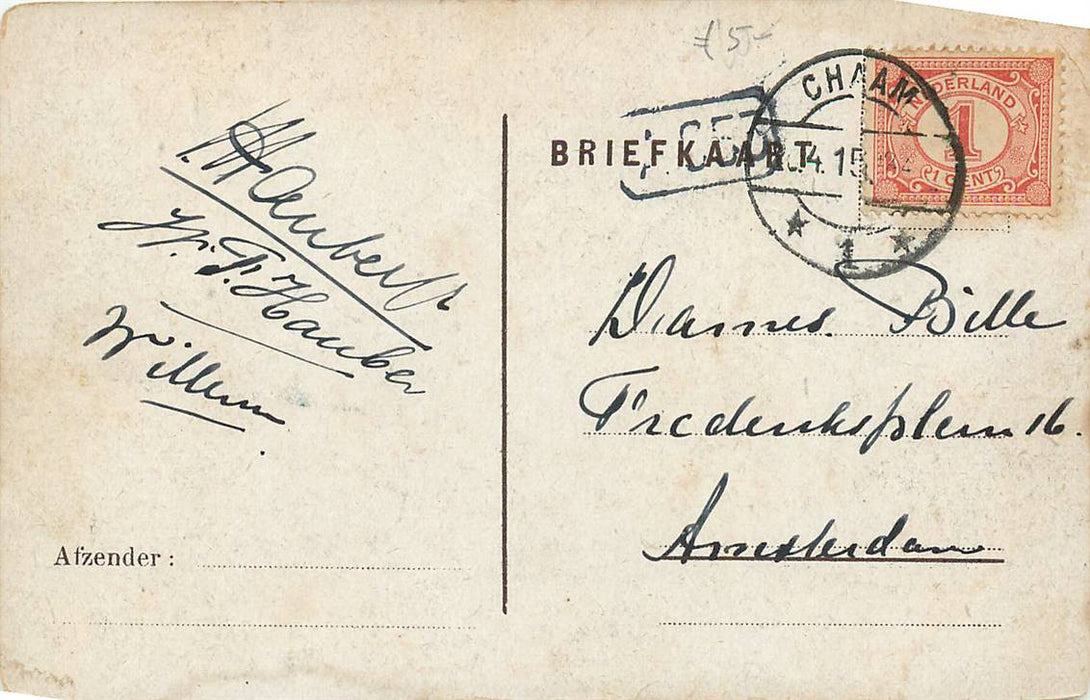 f 5,-
CHAAM
.4.15
1
NEDERLAND
1
1 CENT
BRIEFKAART
Dames Bille
Frederiksplein 16.
Amsterdam
Hauber
Willem
Afzender :